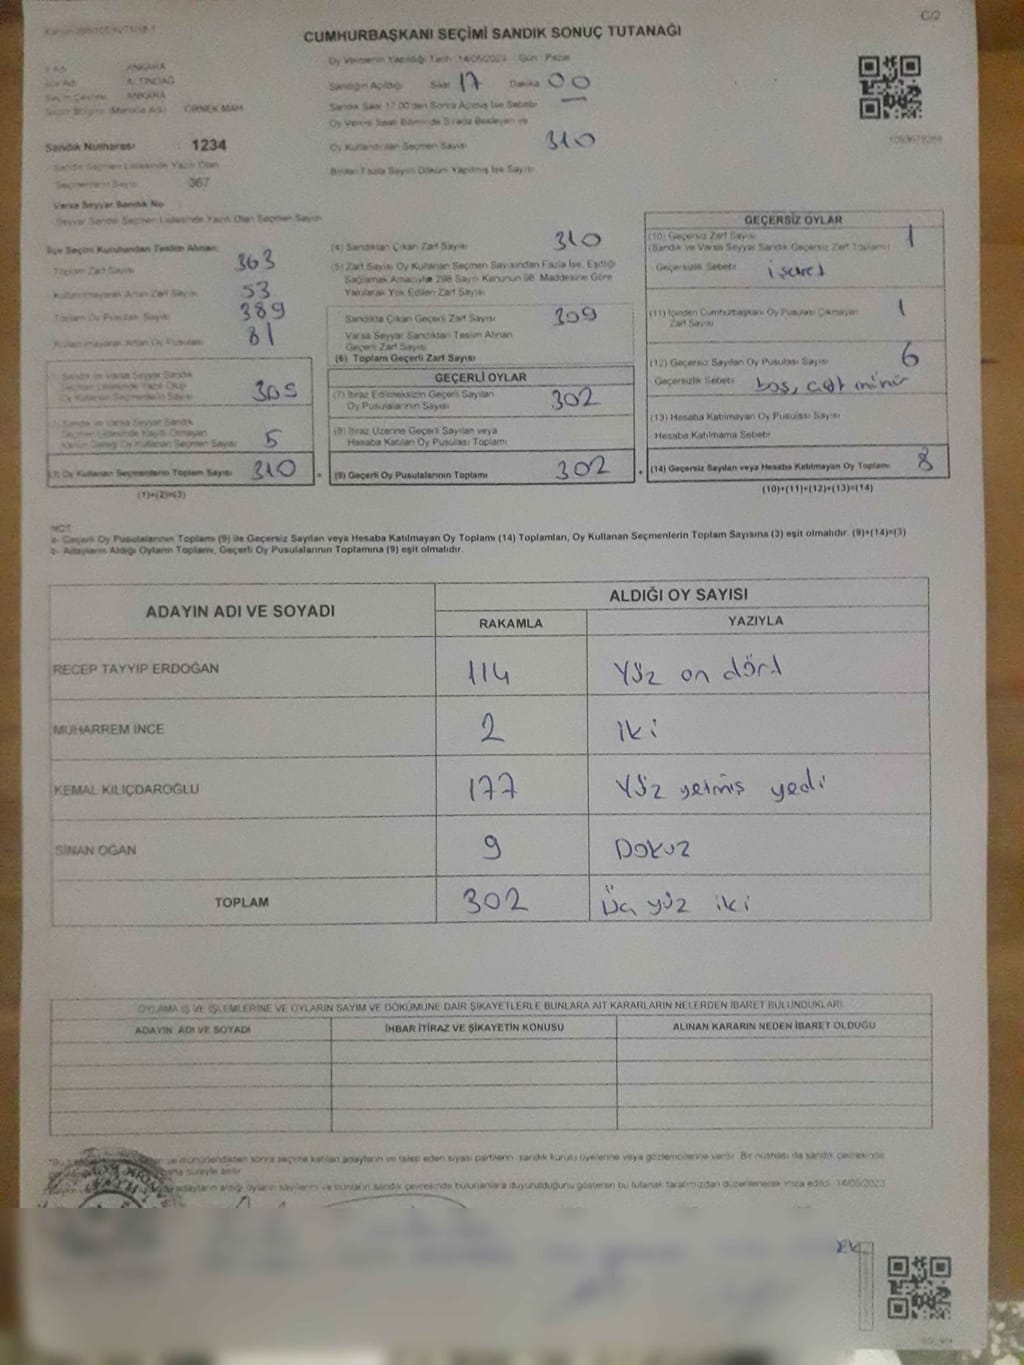 C/2
CUMHURBAŞKANI SEÇİMİ SANDIK SONUÇ TUTANAĞI
ANKARA
ALTINDAĞ
ANKARA
ÖRNEK MAH
Sandık Numarası 1234
Sandık Seçmen Listesinde Yazılı Olan
Seçmenlerin Sayısı 367
Varsa Seyyar Sandık No
Seyyar Sandık Seçmen Listesinde Yazılı Olan Seçmen Sayısı
Oy Vermenin Yapıldığı Tarih 14/05/2023 Gün Pazar
Sandığın Açıldığı Saat 17 Dakika 00
Sandık Saat 17:00'den Sonra Açılmış İse Sebebi
Oy Verme Saati Bitiminde Sırada Bekleyen ve
Oy Kullandırılan Seçmen Sayısı 310
Birden Fazla Sayım Döküm Yapılmış İse Sayısı
İlçe Seçim Kurulundan Teslim Alınan
Toplam Zarf Sayısı 363
Kullanılmayarak Artan Zarf Sayısı 53
Toplam Oy Pusulası Sayısı 389
Kullanılmayarak Artan Oy Pusulası 81
(1) Sandık ve Varsa Seyyar Sandık
Seçmen Listesinde Yazılı Olup
Oy Kullanan Seçmenlerin Sayısı 305
(2) Sandık ve Varsa Seyyar Sandık
Seçmen Listesinde Kayıtlı Olmayan
Kanun Gereği Oy Kullanan Seçmen Sayısı 5
(3) Oy Kullanan Seçmenlerin Toplam Sayısı 310
(1)+(2)=(3)
(4) Sandıktan Çıkan Zarf Sayısı 310
(5) Zarf Sayısı Oy Kullanan Seçmen Sayısından Fazla İse, Eşitliği
Sağlamak Amacıyla 298 Sayılı Kanunun 98. Maddesine Göre
Yakılarak Yok Edilen Zarf Sayısı
Sandıkta Çıkan Geçerli Zarf Sayısı 309
Varsa Seyyar Sandıktan Teslim Alınan
Geçerli Zarf Sayısı
(6) Toplam Geçerli Zarf Sayısı
GEÇERLİ OYLAR
(7) İtiraz Edilmeksizin Geçerli Sayılan
Oy Pusulalarının Sayısı 302
(8) İtiraz Üzerine Geçerli Sayılan veya
Hesaba Katılan Oy Pusulası Toplamı
(9) Geçerli Oy Pusulalarının Toplamı 302
GEÇERSİZ OYLAR
(10) Geçersiz Zarf Sayısı
(Sandık ve Varsa Seyyar Sandık Geçersiz Zarf Toplamı) 1
Geçersizlik Sebebi işaret
(11) İçinden Cumhurbaşkanı Oy Pusulası Çıkmayan
Zarf Sayısı 1
(12) Geçersiz Sayılan Oy Pusulası Sayısı 6
Geçersizlik Sebebi boş, çift mühür
(13) Hesaba Katılmayan Oy Pusulası Sayısı
Hesaba Katılmama Sebebi
(14) Geçersiz Sayılan veya Hesaba Katılmayan Oy Toplamı 8
(10)+(11)+(12)+(13)=(14)
NOT
a- Geçerli Oy Pusulalarının Toplamı (9) ile Geçersiz Sayılan veya Hesaba Katılmayan Oy Toplamı (14) Toplamları, Oy Kullanan Seçmenlerin Toplam Sayısına (3) eşit olmalıdır. (9)+(14)=(3)
b- Adayların Aldığı Oyların Toplamı, Geçerli Oy Pusulalarının Toplamına (9) eşit olmalıdır.
ADAYIN ADI VE SOYADI
ALDIĞI OY SAYISI
RAKAMLA YAZIYLA
RECEP TAYYİP ERDOĞAN 114 Yüz on dört
MUHARREM İNCE 2 İki
KEMAL KILIÇDAROĞLU 177 Yüz yetmiş yedi
SİNAN OĞAN 9 Dokuz
TOPLAM 302 Üç yüz iki
OYLAMA İŞ VE İŞLEMLERİNE VE OYLARIN SAYIM VE DÖKÜMÜNE DAİR ŞİKAYETLERLE BUNLARA AİT KARARLARIN NELERDEN İBARET BULUNDUKLARI
ADAYIN ADI VE SOYADI İHBAR İTİRAZ VE ŞİKAYETİN KONUSU ALINAN KARARIN NEDEN İBARET OLDUĞU
ve mühürlendikten sonra seçime katılan adayların ve talep eden siyasi partilerin sandık kurulu üyelerine veya gözlemcilerine verilir. Bir nüshası da sandık çevresinde
süreyle asılır.
adayların aldığı oyların sayılarını ve bunların sandık çevresinde bulunanlara duyurulduğunu gösteren bu tutanak tarafımızdan düzenlenerek imza edildi. 14/05/2023